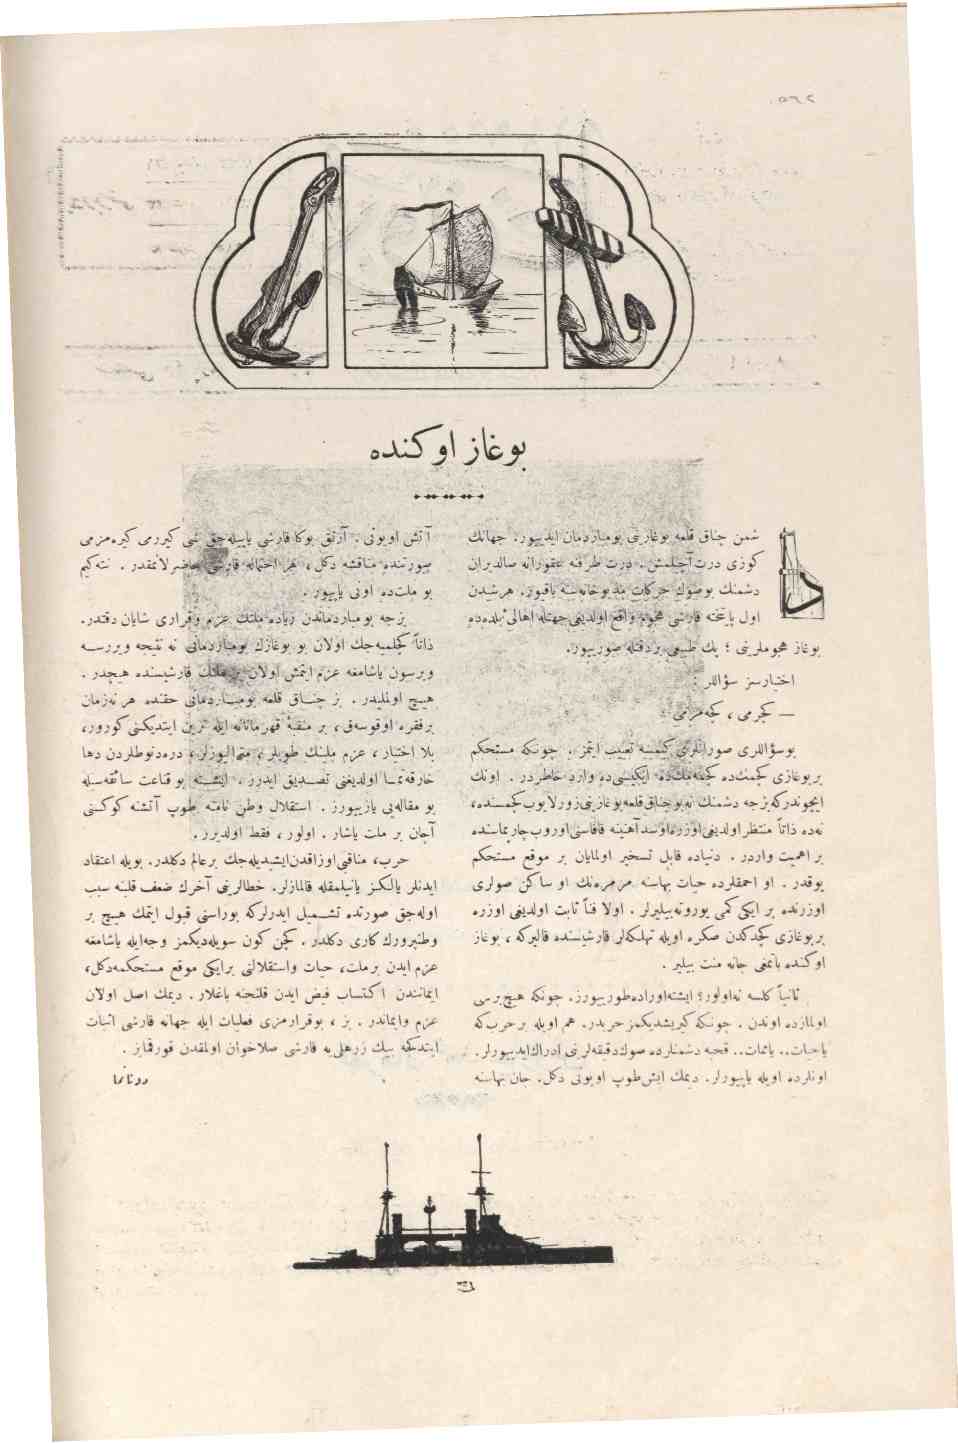 بوغاز اوكنده
دشمن چناق قلعه بوغازينى بومباردمان ايدييور. جهانك
كوزى درت آچيلمش. درت طرفه عقورانه صالديران
دشمنك بوصوك حركات مذبوحانه‌سنه باقيور. هرشيدن
اول پايتخته قارشى هجوم واقع اولديغى جهتله اهالئ بلده‌ده
بوغاز هجوملرينى ؛ پك طبيعى بردقتله صورييور.
اختيارسز سؤاللر :
— كچرمى ، كچه‌مزمى ؟
بوسؤاللرى صورانلرى كيمسه تعييب ايتمز. چونكه مستحكم
بربوغازى كچمك‌ده كچمه‌مك‌ده ايكيسى‌ده وارد خاطردر . اونك
ايچوندركه بزجه دشمنك نه‌بوچناق قلعه بوغازينى زورلايوب كچمسنده،
نه‌ده ذاتاً منتظر اولديغى اوزره اوسدآهنينه قافاسنى اوروب چارپماسنده
بر اهميت واردر . دنياده قابل تسخير اولمايان بر موقع مستحكم
يوقدر . او احمقلرده حيات بهاسنه مرمره‌نك او ساكن صولرى
اوزرنده بر ايكى كمى يوروته‌بيليرلر . اولا فناً ثابت اولديغى اوزره
بربوغازى كچدكدن صكره اويله تهلكه‌لر قارشيسنده قاليركه ، بوغاز
اوكنده باتمغى جانه منت بيلير .
ثانياً كلسه نه‌اولور؟ ايشته‌اوراده‌طورييورز. چونكه هيچ‌برشى
اولمازده اوندن . چونكه كيريشديكمز حربدر. هم اويله برحرب‌كه
ياحيات.. ياممات.. قحبه دشمنلرده صوك‌دقيقه‌لرينى ادراك‌ايدييورلر.
اونلرده اويله ياپييورلر. ديمك ايش‌طوپ اويونى دكل. جان بهاسنه
آتش اويونى . آرتق بوكا قارشى ياپيله‌جق شى كيررمى كيره‌مزمى
صورتنده مناقشه دكل ، هر احتماله قارشى حاضرلانمقدر. نته‌كيم
بو ملت‌ده اونى ياپييور .
بزجه بومباردماندن زياده ملتك عزم وقرارى شايان دقتدر.
ذاتاً كچلميه‌جك اولان بو بوغازك بومباردمانى نه نتيجه ويررسه
ويرسون ياشامغه عزم ايتمش اولان بر ملتك قارشيسنده هيچدر .
هيچ اولمليدر. بز چناق قلعه بومباردمانى حقنده هر نه‌زمان
برفقره اوقوسه‌ق، بر منقبۀ قهرمانانه ايله تزيين ايتديكنى كورور،
بلا اختيار، عزم ملينك طوپلر، متراليوزلر، دره‌دنوطلردن دها
خارقه‌نما اولديغنى تصديق ايدرز . ايشته بو قناعت سائقه‌سيله
بو مقاله‌يى يازييورز. استقلال وطن نامنه طوپ آتشنه كوكسنى
آچان بر ملت ياشار . اولور، فقط اولديرر.
حرب، مناقبى اوزاقدن‌ايشيديله‌جك برعالم دكلدر. بويله اعتقاد
ايدنلر يالكز يانيلمقله قالمازلر. خطالرينى آخرك ضعف قلبنه سبب
اوله‌جق صورتده تشميل ايدرلركه بوراسنى قبول ايتمك هيچ بر
وطنپرورك كارى دكلدر. كچن كون سويله‌ديكمز وجه‌ايله ياشامغه
عزم ايدن برملت، حيات واستقلالنى برايكى موقع مستحكمه‌دكل،
ايمانندن اكتساب فيض ايدن قلنجنه باغلار. ديمك اصل اولان
عزم وايماندر. بز ، بوقرارمزى فعليات ايله جهانه قارشى اثبات
ايتدكجه بيك زرهلى‌يه قارشى صلاخوان اولمقدن قورقمايز.
دوننما